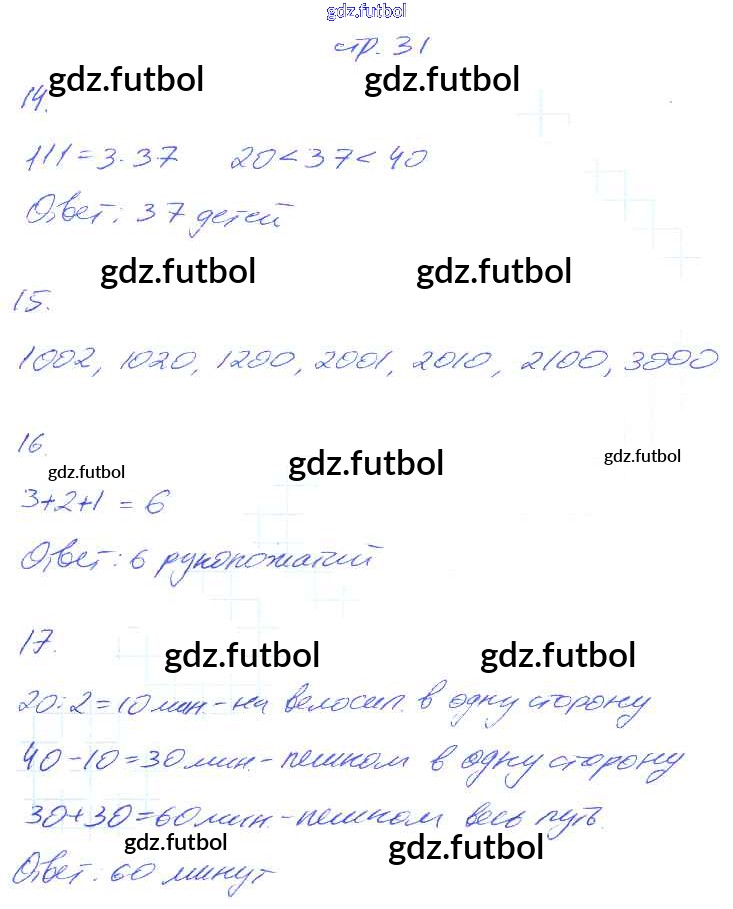 gdz.futbol
стр. 31
gdz.futbol gdz.futbol
14.
111 = 3·37 20 < 37 < 40
Ответ: 37 детей
gdz.futbol gdz.futbol
15.
1002, 1020, 1200, 2001, 2010, 2100, 3000
16.
gdz.futbol gdz.futbol gdz.futbol
3+2+1 = 6
Ответ: 6 рукопожатий
17.
gdz.futbol gdz.futbol
20:2=10 мин.-на велосип. в одну сторону
40-10=30 мин.-пешком в одну сторону
30+30=60 мин.-пешком весь путь.
gdz.futbol gdz.futbol
Ответ: 60 минут